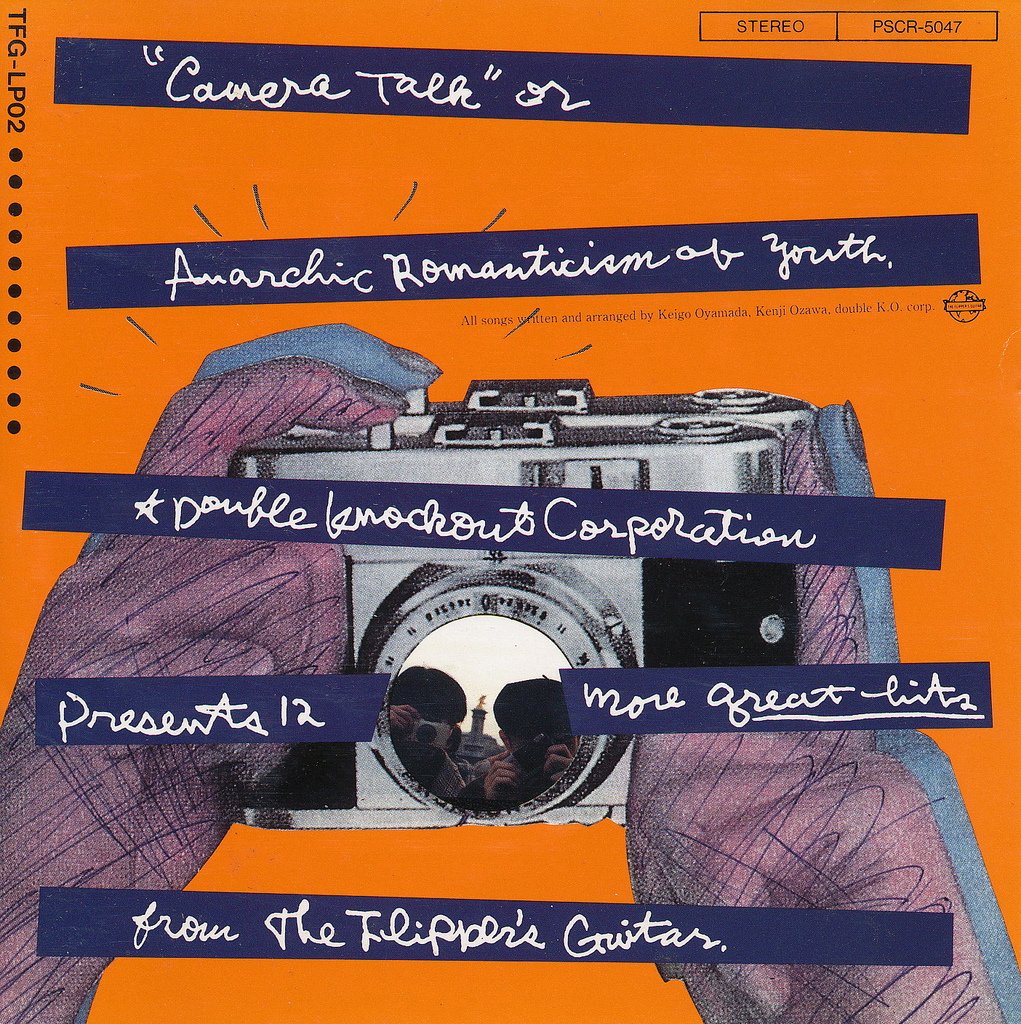 TFG-LP02
STEREO PSCR-5047
"Camera Talk" or
Anarchic Romanticism of Youth.
All songs written and arranged by Keigo Oyamada, Kenji Ozawa, double K.O. corp.
THE FLIPPER'S GUITAR
A Double Knockout Corporation
Presents 12 more great hits
from The Flipper's Guitar.